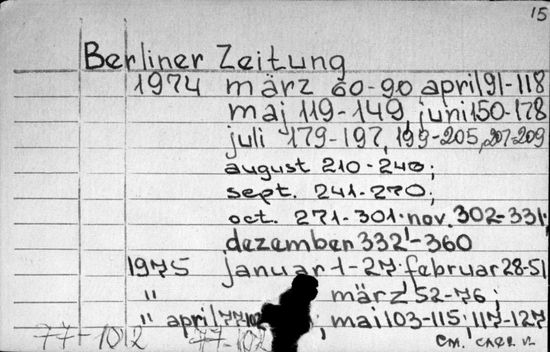 15
Berliner Zeitung
1974 märz 60-90 april 91-118
maj 119-149, juni 150-178
juli 179-197, 199-205, 207-209
august 210-240;
sept. 241-270;
oct. 271-301. nov. 302-331.
dezember 332-360
1975 januar 1-27. februar 28-51
" märz 52-76;
" april 77-102; mai 103-115; 117-127
77-102 77-102 см. след.